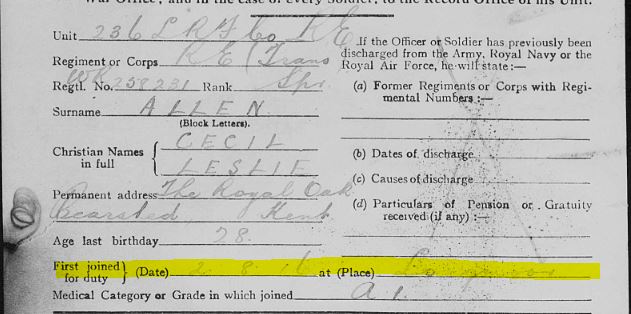 War Office, and in the case of every Soldier, to the Record Office of his Unit.
Unit 236 L R F Co R E
Regiment or Corps R E (Trans
Regtl. No. WR 258231 Rank Spr
Surname ALLEN
(Block Letters).
Christian Names in full { CECIL
LESLIE
Permanent address The Royal Oak
Bearsted Kent
Age last birthday 28
First joined for duty } (Date) 2 8 16 at (Place)
Medical Category or Grade in which joined A 1
If the Officer or Soldier has previously been
discharged from the Army, Royal Navy or the
Royal Air Force, he will state:—
(a) Former Regiments or Corps with Regi-
mental Numbers:—
(b) Dates of discharge
(c) Causes of discharge
(d) Particulars of Pension or Gratuity
received (if any):—